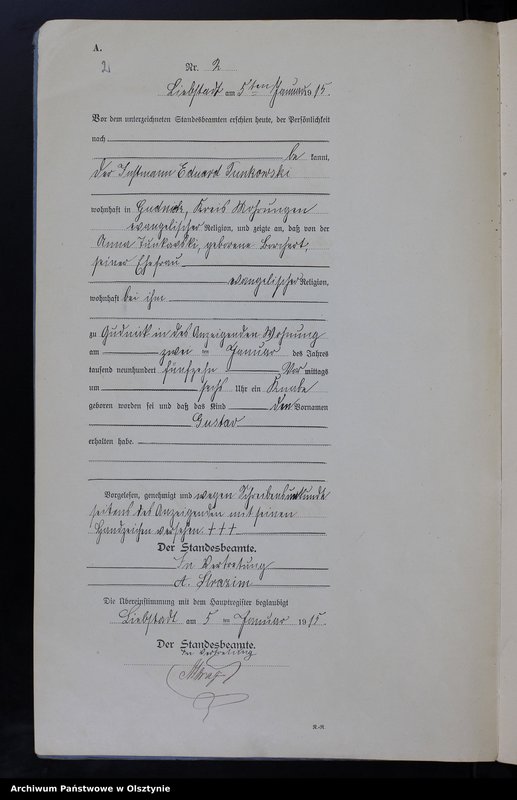 A.
2
Nr. 2
Liebstadt am 5ten Januar 1915.
Vor dem unterzeichneten Standesbeamten erschien heute, der Persönlichkeit
nach
be kannt,
der Instmann Eduard Junkowski
wohnhaft in Gudnick, Kreis Mohrungen
evangelischer Religion, und zeigte an, daß von der
Anna Junkowski, geborene Borchert,
seiner Ehefrau
evangelischer Religion,
wohnhaft bei ihm
zu Gudnick in des Anzeigenden Wohnung
am zwei ten Januar des Jahres
tausend neunhundert fünfzehn Vor mittags
um sechs Uhr ein Knabe
geboren worden sei und daß das Kind den Vornamen
Gustav
erhalten habe.
Vorgelesen, genehmigt und wegen Schreibensunkunde
seitens des Anzeigenden mit seinen
Handzeichen versehen. +++
Der Standesbeamte.
In Vertretung
A. Strazim
Die Übereinstimmung mit dem Hauptregister beglaubigt
Liebstadt am 5 ten Januar 1915.
Der Standesbeamte.
In Vertretung
R.-R.
Archiwum Państwowe w Olsztynie